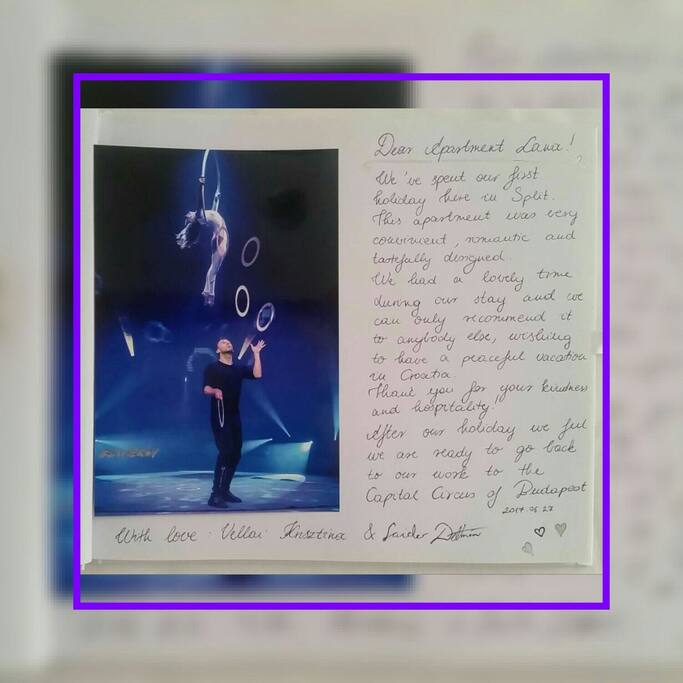 Dear Apartment Lana!
We've spent our first
holiday here in Split.
This apartment was very
convinient, romantic and
tastefully designed.
We had a lovely time
during our stay and we
can only recommend it
to anybody else, wishing
to have a peaceful vacation
in Croatia.
Thank you for your kindness
and hospitality!
After our holiday we feel
we are ready to go back
to our work to the
Capital Circus of Budapest
With love: Vellai Krisztina & Sandor